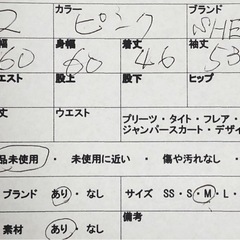 カラー ブランド
2 ピンク SHE
幅 身幅 着丈 袖丈
60 60 46 53
エスト 股上 股下 ヒップ
丈 ウエスト プリーツ・タイト・フレア
ジャンパースカート・デザイ
品未使用 ・ 未使用に近い ・ 傷や汚れなし ・
ブランド あり・なし サイズ SS・S・M・L・
素材 あり・なし 備考